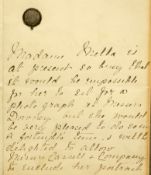 Madame Melba is
at present so busy that
it would be impossible
for her to sit for a
photograph at
but she would
be very pleased to do so in
a & will be
delighted to allow
Cassell & Company
to include her portrait